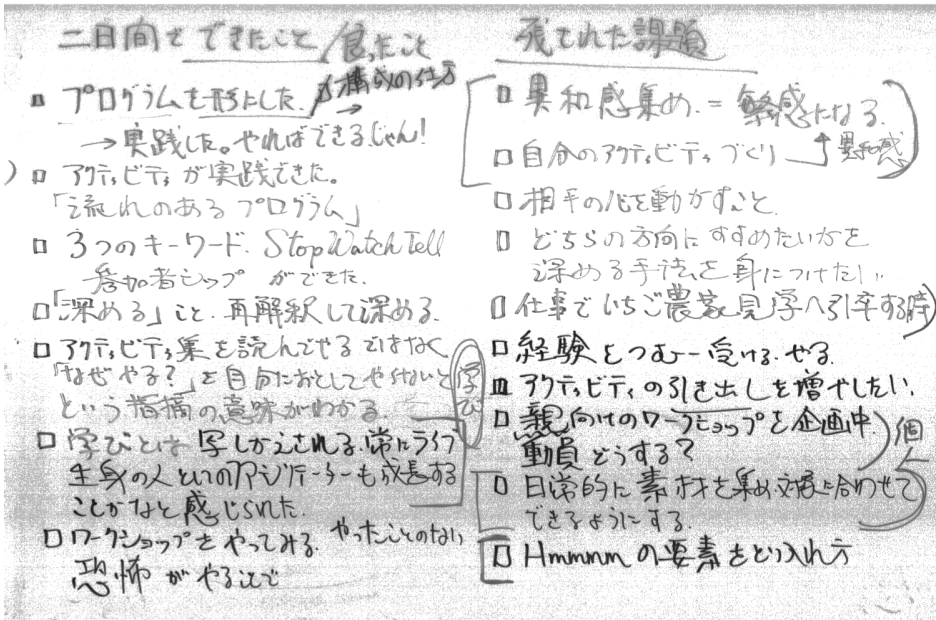 二日間でできたこと/良ったこと
プログラムを形にした. 構成の仕方
→実践した。やればできるじゃん!
アクティビティが実践できた。
「流れのあるプログラム」
3つのキーワード. Stop Watch Tell
参加者シップ ができた.
「深める」こと. 再解釈して深める.
アクティビティ集を読んでやるではなく
「なぜやる?」を自分におとしてやらないと
という指摘の意味がわかる. 学び
学びとは 写しかえされる. 常にライブ
生身の人としてのファシリテーターも成長する
ことかなと感じられた.
ワークショップをやってみる. やったことのない
恐怖がやることで
残された課題
異和感集め. = 敏感になる.
自分のアクティビティづくり 異和感
相手の心を動かすこと
どちらの方向にすすめたいかを
深める手法を身につけたい
仕事でいちご農家見学へ引率する時
経験をつむー受ける. やる.
アクティビティの引き出しを増やしたい.
親向けのワークショップを企画中.
動員どうする? 個
日常的に素材を集め交換に合わせて
できるようにする.
Hmmmmの要素をどり入れ方